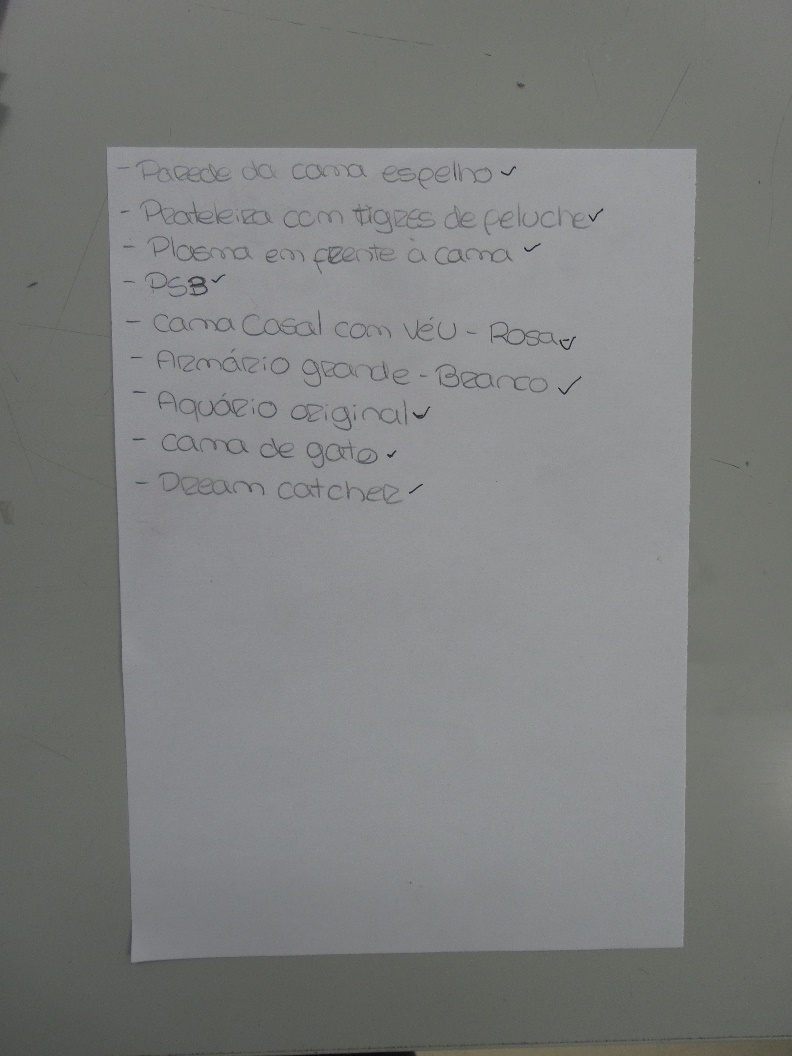 - Parede da cama espelho ✓
- Prateleira com tigres de peluche ✓
- Plasma em frente à cama ✓
- PS3 ✓
- Cama Casal com véu - Rosa ✓
- Armário grande - Branco ✓
- Aquário original ✓
- Cama de gato ✓
- Dream catcher ✓